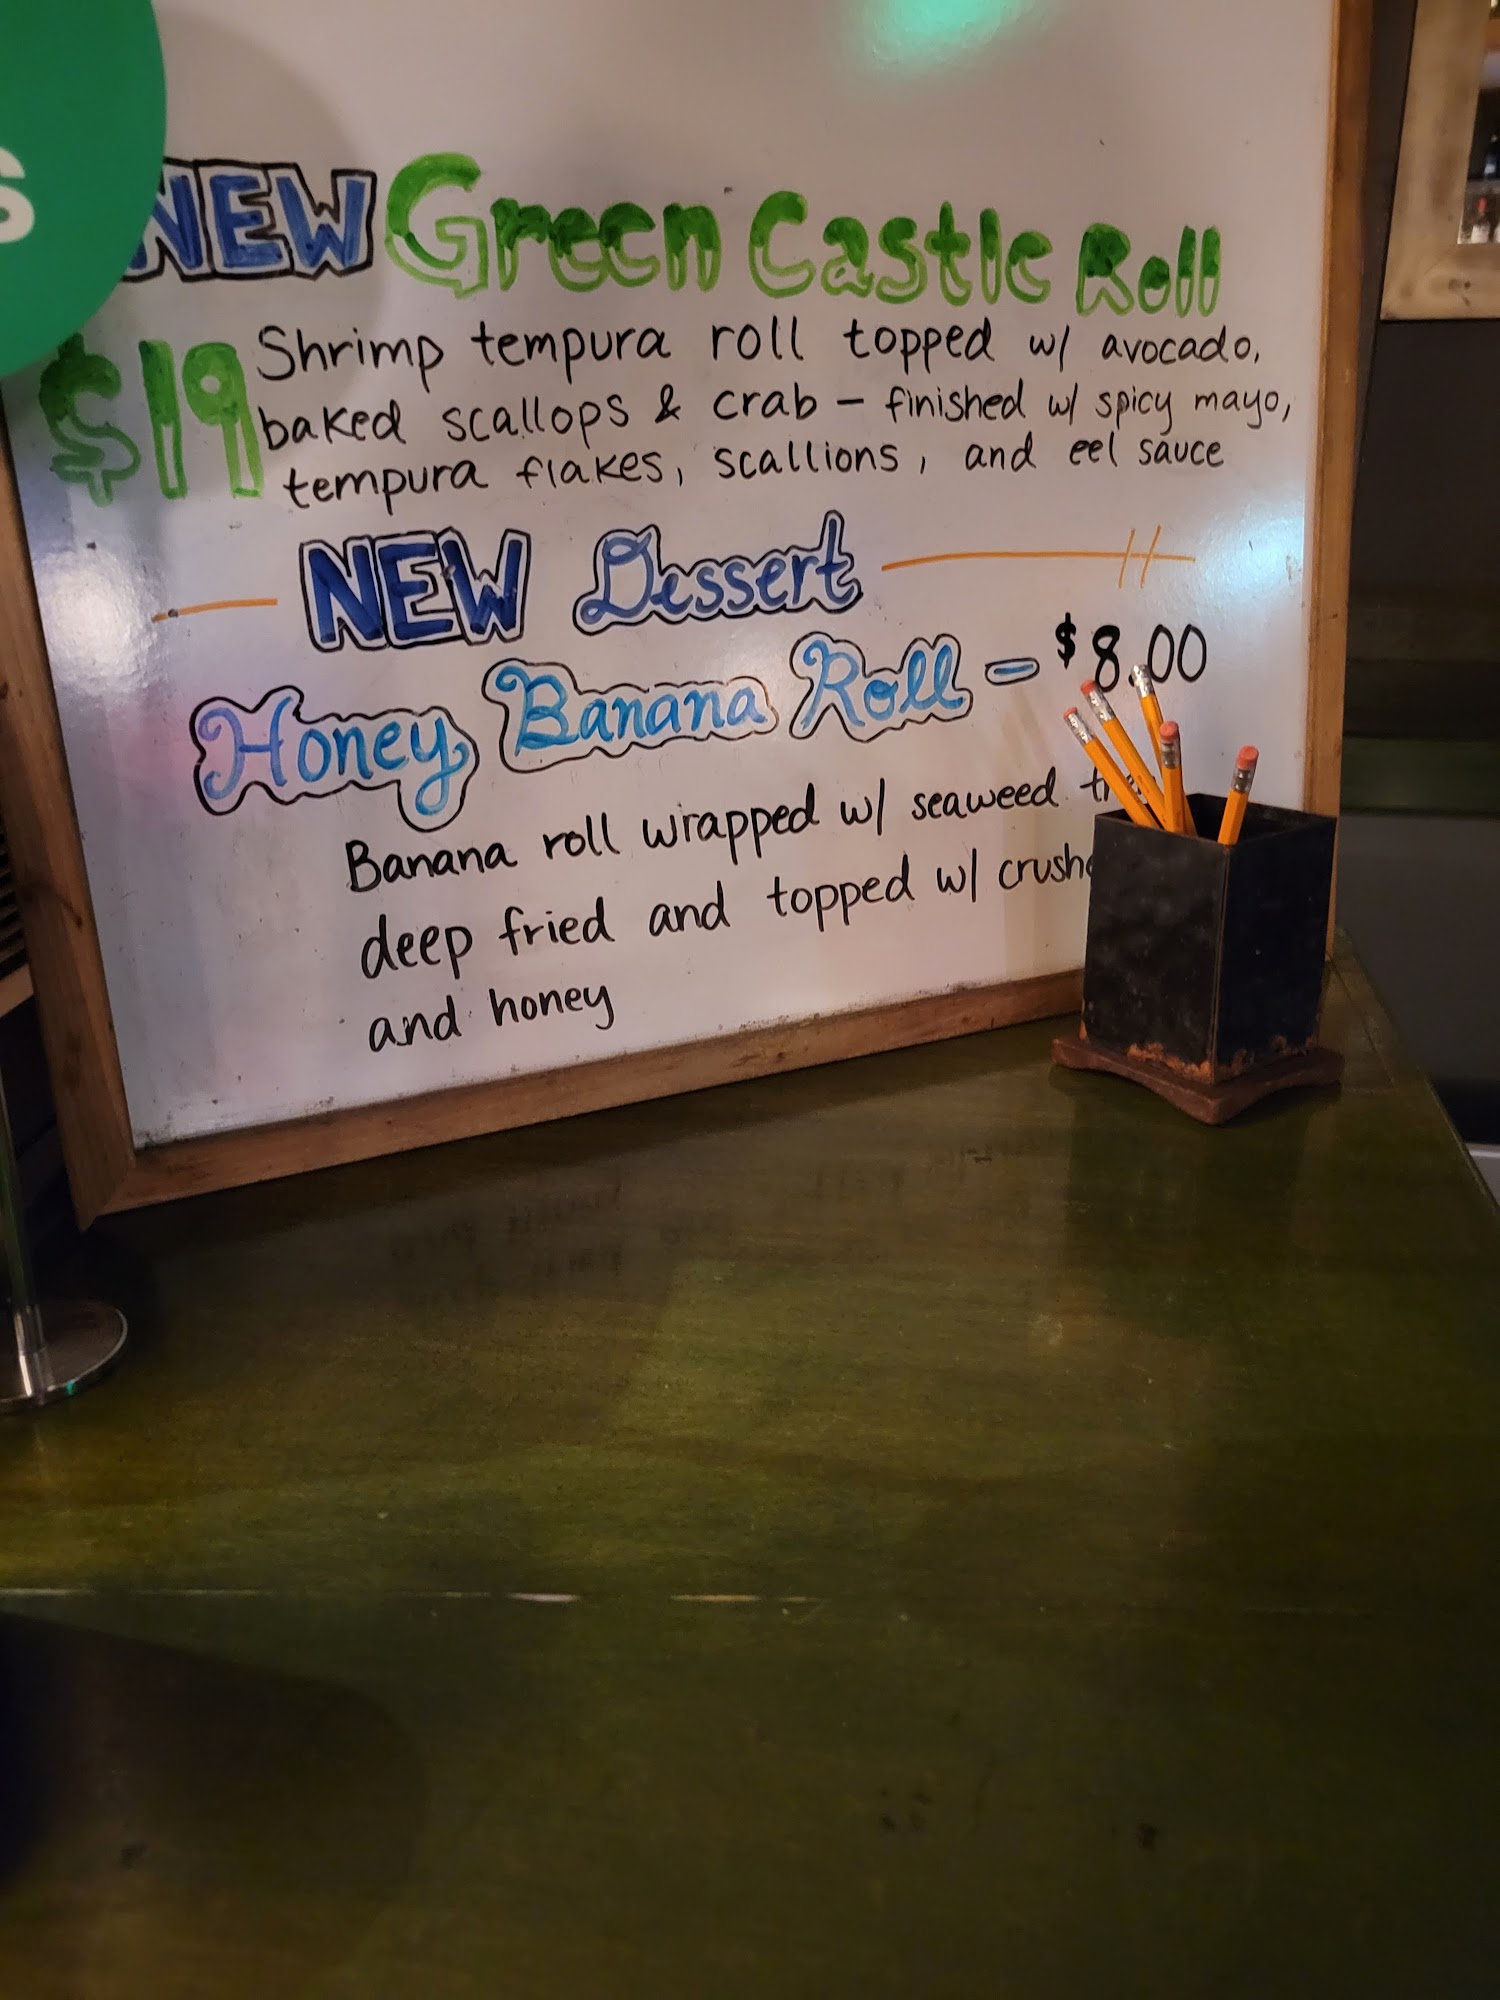 S
NEW Green Castle Roll
$19 Shrimp tempura roll topped w/ avocado,
baked scallops & crab – finished w/ spicy mayo,
tempura flakes, scallions, and eel sauce
NEW Dessert
Honey Banana Roll – $8.00
Banana roll wrapped w/ seaweed
deep fried and topped w/
and honey